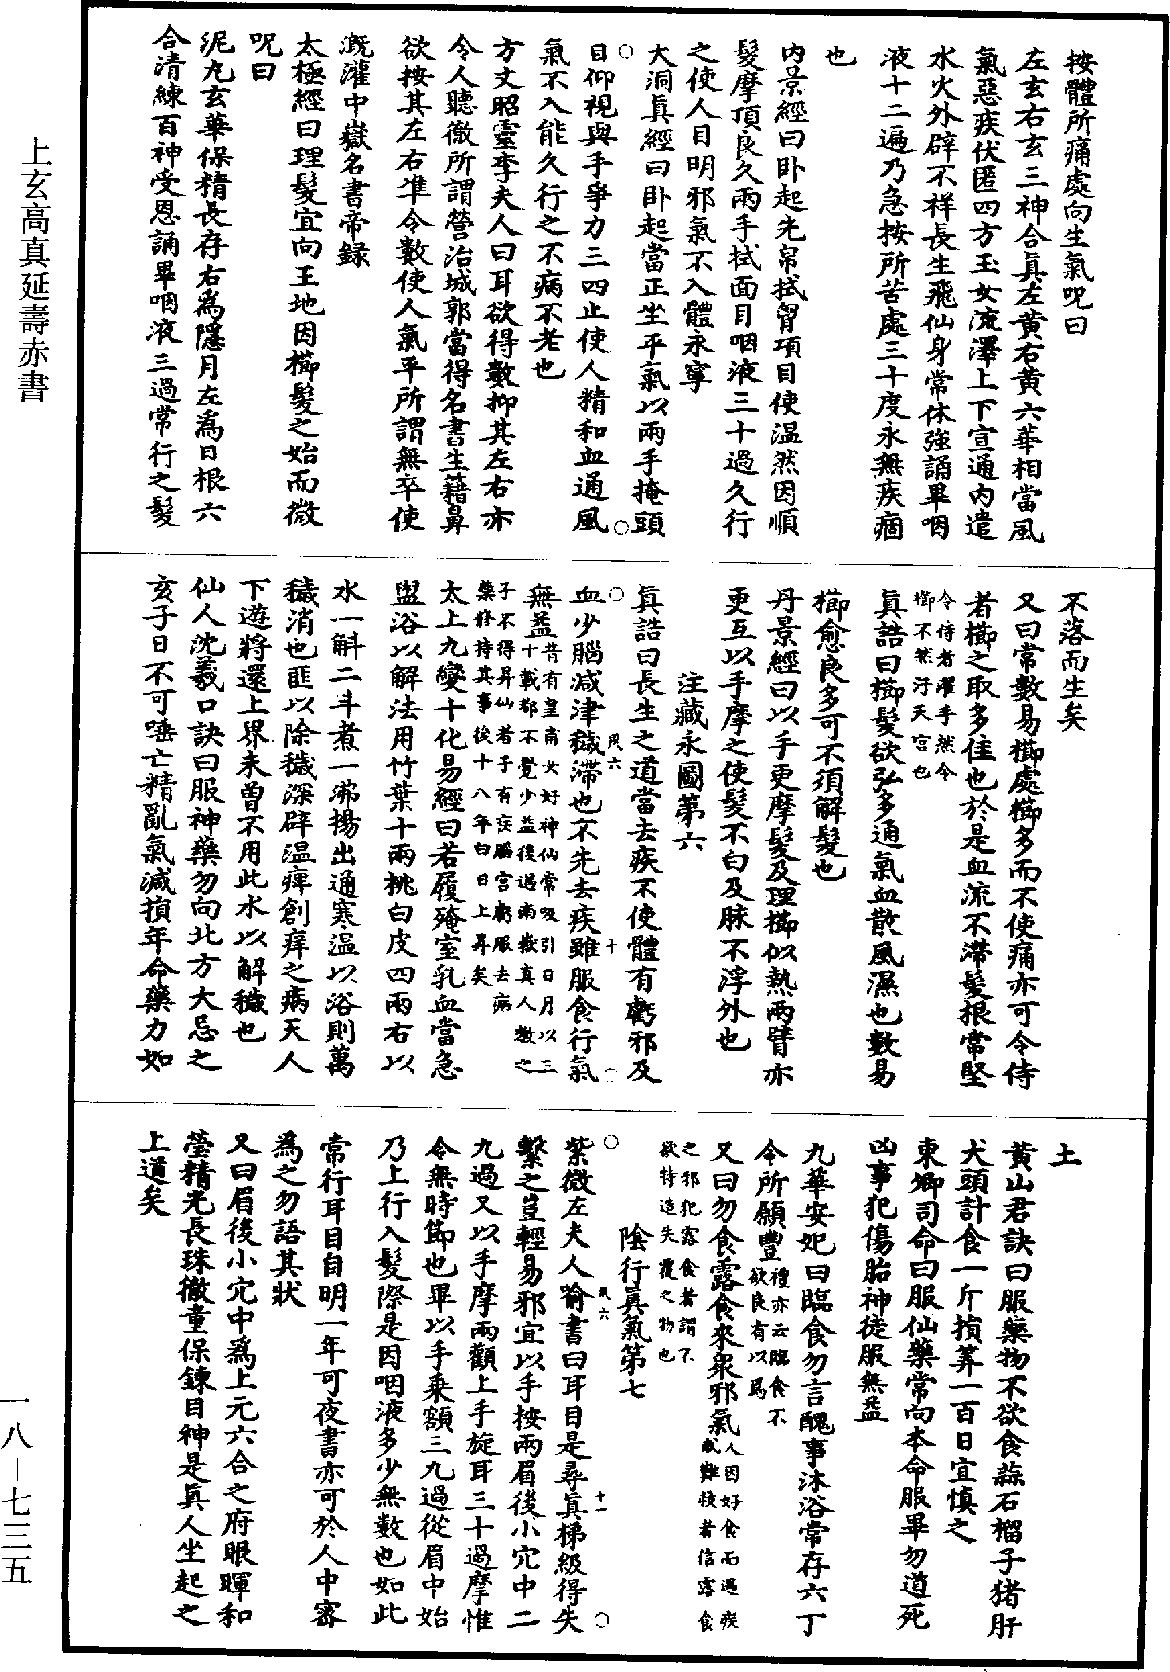 按體所痛處向生氣呪曰
左玄右玄三神合真左黄右黄六華相當風
氣惡疾伏匿四方玉女流澤上下宣通内遣
水火外辟不祥長生飛仙身常休強誦畢咽
液十二遍乃急按所苦處三十度永無疾痼
也
内景經曰卧起先帛拭胷項目使温然因順
髮摩頂良久兩手拭面目咽液三十過久行
之使人目明邪氣不入體永寧
大洞真經曰卧起當正坐平氣以兩手掩頭
目仰視與手爭力三四止使人精和血通風
氣不入能久行之不病不老也
方丈昭靈李夫人曰耳欲得數抑其左右亦
令人聽徹所謂營治城郭當得名書生籍鼻
欲按其左右準令數使人氣平所謂無卒使
溉灌中嶽名書帝録
太極經曰理髮宜向王地因櫛髮之始而微
呪曰
泥丸玄華保精長存右為隱月左為日根六
合清練百神受恩誦畢咽液三過常行之髮
不落而生矣
又曰常數易櫛處櫛多而不使痛亦可令侍
者櫛之取多佳也於是血流不滯髮根常堅
令侍者濯手然令
櫛不然汙天宫也
真誥曰櫛髮欲弘多通氣血散風濕也數易
櫛愈良多可不須解髮也
丹景經曰以手更摩髮及理櫛似熱兩臂亦
更互以手摩之使髮不白及脉不浮外也
注藏永固第六
真誥曰長生之道當去疾不使體有虧邪及
血少腦減津穢滯也不先去疾雖服食行氣
無益昔有皇甫女好神仙常吸引日月以三
十載都不覺少益後遇南嶽真人教之
子不得昇仙者子有疾腦宫虧服去病
藥修持其事後十八年白日上昇矣
太上九變十化易經曰若履殗室乳血當急
盥浴以解法用竹葉十兩桃白皮四兩右以
水一斛二斗煮一沸揚出通寒温以浴則萬
穢消也匪以除穢深辟温痺創痒之病天人
下遊將還上界未曽不用此水以解穢也
仙人沈羲口訣曰服神藥勿向北方大忌之
亥子日不可唾亡精亂氣減損年命藥力如
土
黄山君訣曰服藥物不欲食蒜石榴子猪肝
犬頭計食一斤損筭一百日宜慎之
東卿司命曰服仙藥常向本命服畢勿道死
凶事犯傷胎神徒服無益
九華安妃曰臨食勿言醜事沐浴常存六丁
令所願豐禮亦云臨食不
欲良有以焉
又曰勿食露食來衆邪氣人因好食而遇疾
或難復者信露食
之邪犯露食者謂不
欲持造失覆之物也
陰行真氣第七
紫微左夫人喻書曰耳目是尋真梯級得失
繫之豈輕易邪宜以手按兩眉後小穴中二
九過又以手摩兩顴上手旋耳三十過摩惟
令無時節也畢以手乗額三九過從眉中始
乃上行入髮際是因咽液多少無數也如此
常行耳目自明一年可夜書亦可於人中審
為之勿語其狀
又曰眉後小穴中為上元六合之府眼暉和
瑩精光長珠徹童保鍊目神是真人坐起之
上道矣
上玄高真延壽赤書
一八—七三五